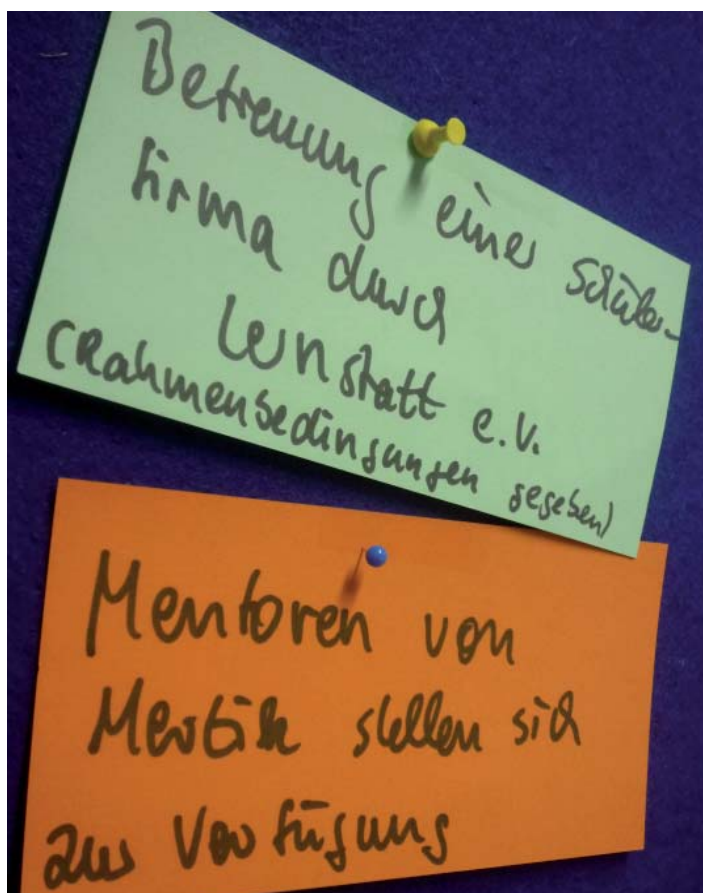 Betreuung einer Schüler-
firma durch
Lernstatt e.V.
(Rahmenbedingungen gegeben)
Mentoren von
Mertik stellen sich
zur Verfügung